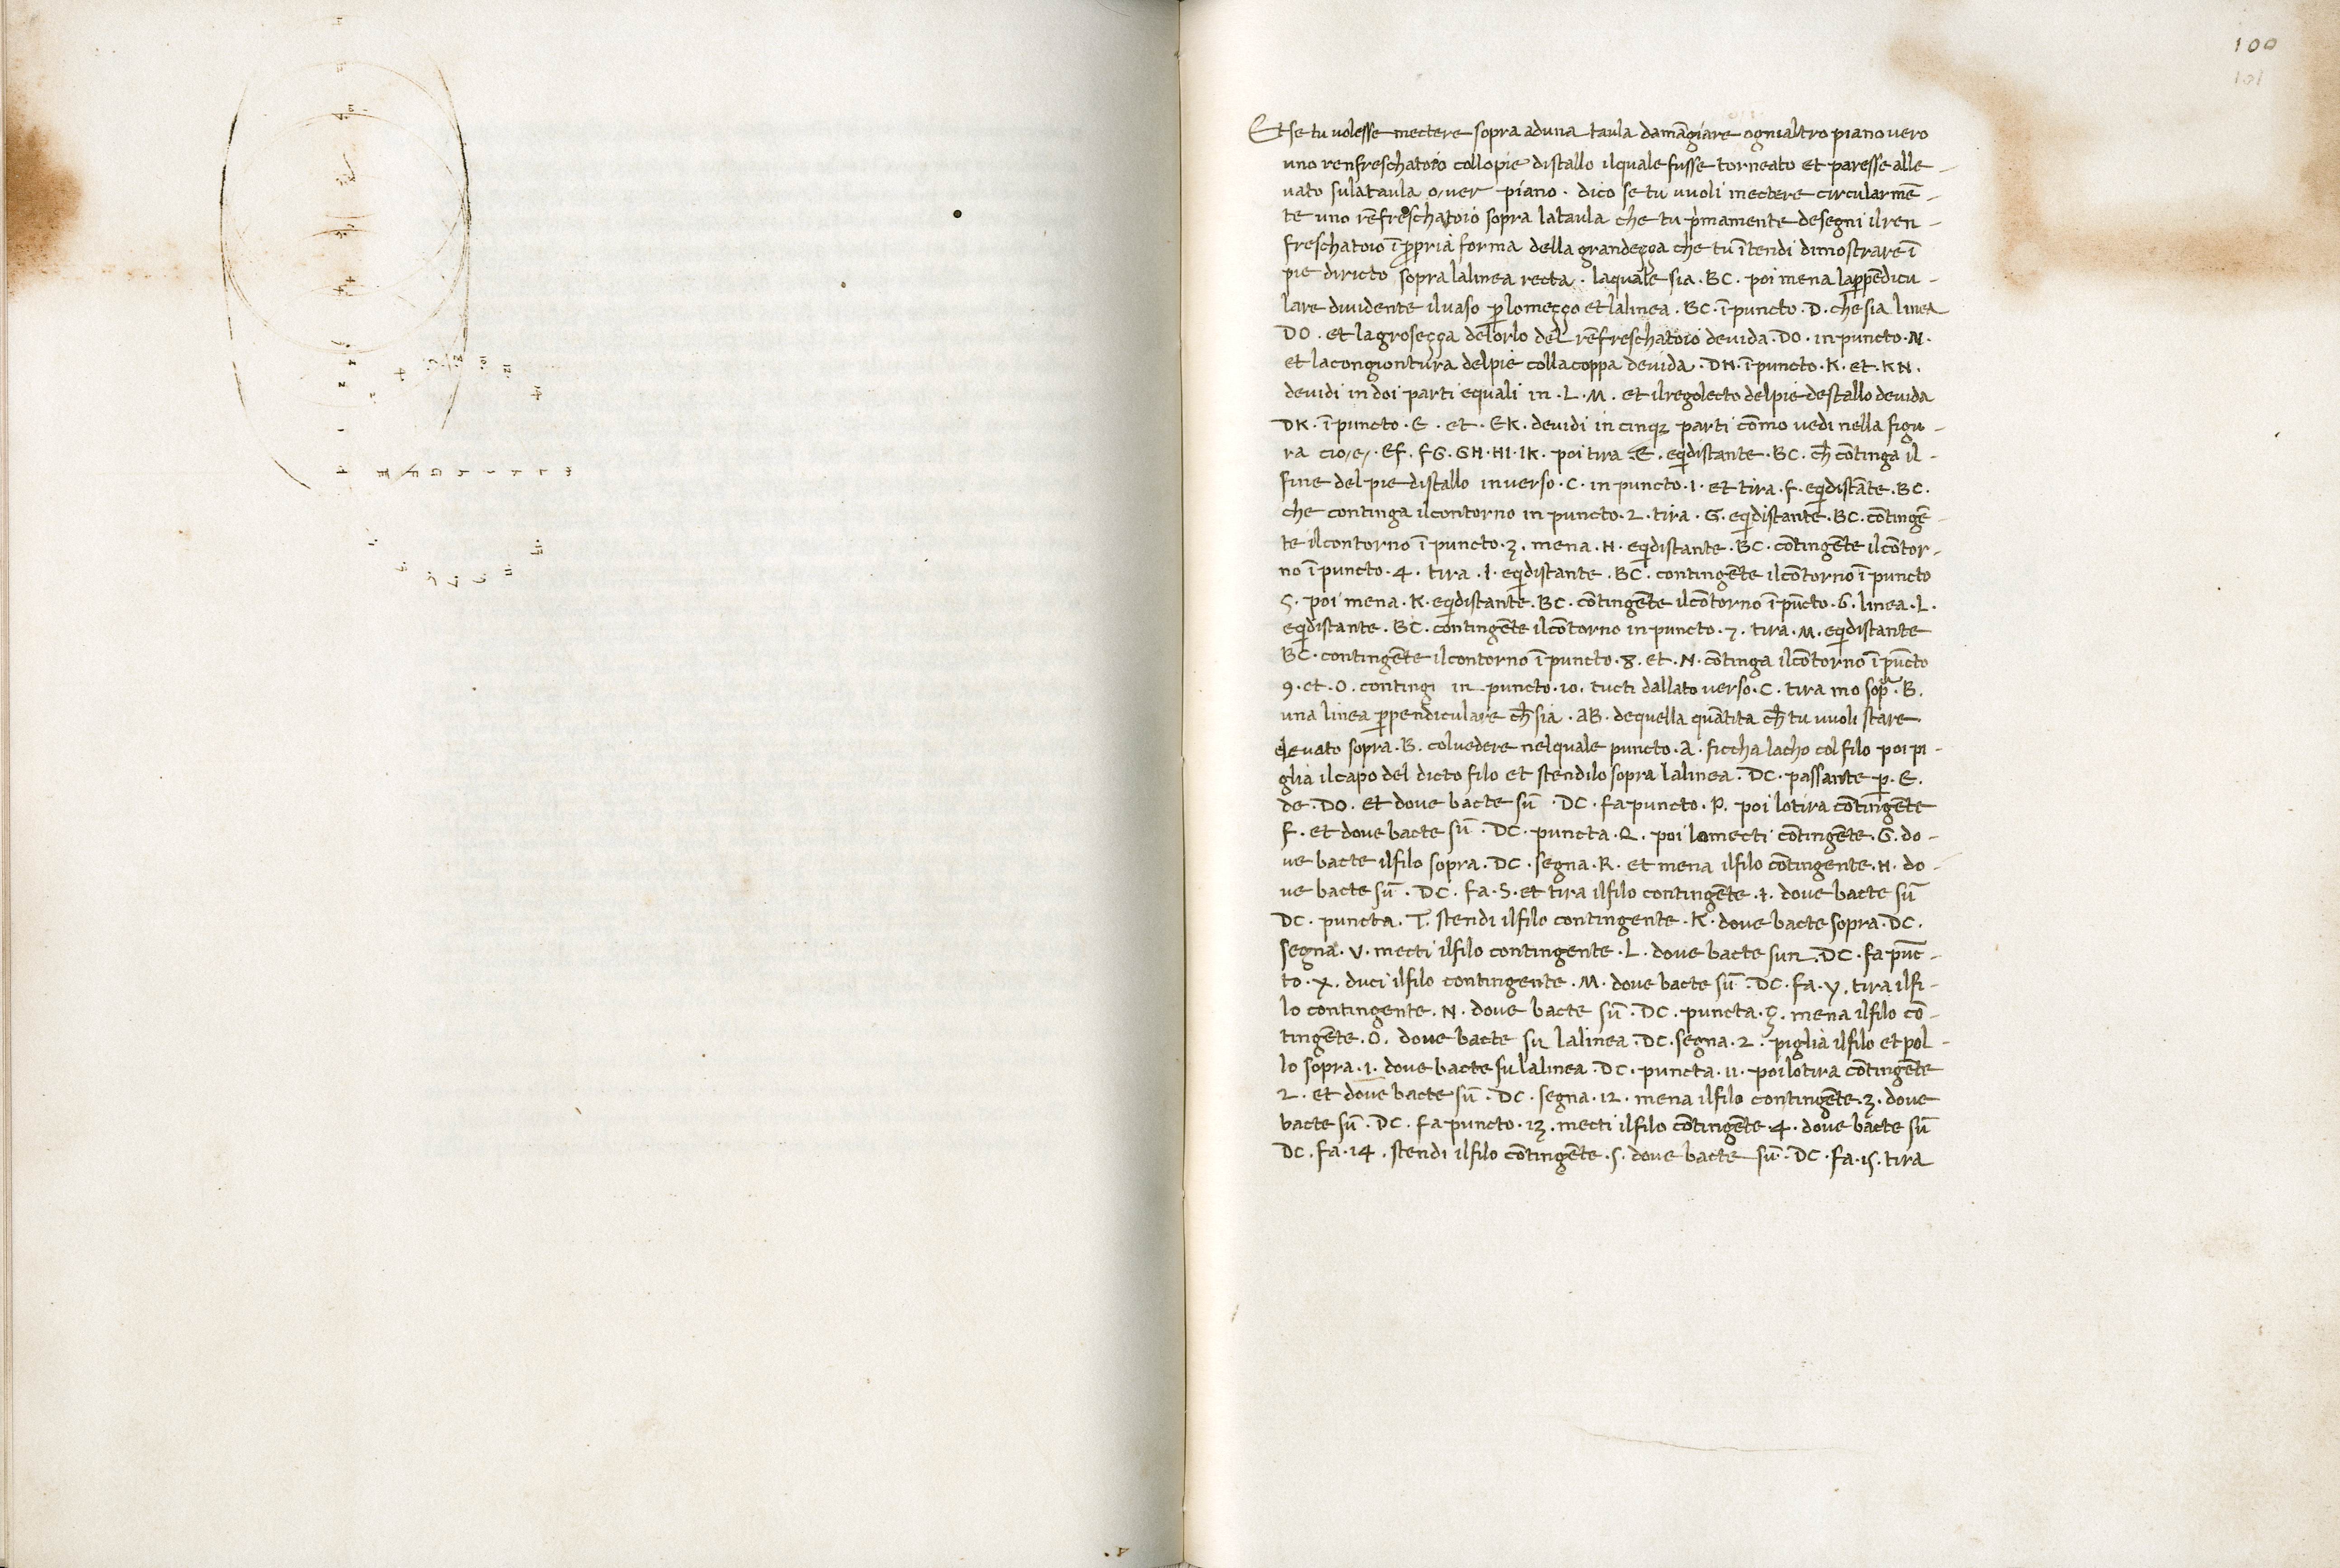 100
101
Et se tu volesse mectere sopra aduna taula damāgiare ognialtro piano vero
uno renfreschatoio collopie distallo ilquale fusse torneato et paresse alle-
vato sulataula o/ver piano · dico se tu vuoli mectere circularmē-
te uno rēfreschatoio sopra lataula che tu p̄mamente desegni ilren-
freschatoio ī propria forma della grandeçça che tu ītendi dimostrare ī
pie diricto sopra lalinea recta · laquale sia · BC · poi mena lap̱pēdicu-
lare dividente ilvaso p̱ lomeçço et lalinea · BC · ī puncto · D · che sia linea
DO · et lagroseçça delorlo del rēfreschatoio devida · DO · in puncto · N ·
et lacongiontura delpie collacoppa devida · DN · ī puncto · K · et · KN ·
devidi in doi parti equali in · L · M · et ilregolecto delpie destallo devida
DK · ī puncto · E · et · EK · devidi in cinqz parti cōmo vedi nella figu-
ra cio/e/ · EF · FG · GH · HI · IK · poi tira · E · eq̄distante · BC · ch̄ cōtinga il-
fine del pie distallo inverso · C · in puncto · 1 · et tira · F · eq̄distāte · BC ·
che continga ilcontorno in puncto · 2 · tira · G · eq̄distante · BC · cōtingē-
te ilcontorno ī puncto · 3 · mena · H · eq̄distante · BC · cōtingēte ilcōtor-
no ī puncto · 4 · tira · I · eq̄distante · BC · contingēte ilcōtorno ī puncto
5 · poi mena · K · eq̄distante · BC · cōtingēte ilcōtorno ī pūcto · 6 · linea · L ·
eq̄distante · BC · contingēte ilcōtorno in puncto · 7 · tira · M · eq̄distante
BC · contingēte ilcontorno ī puncto · 8 · et · N · cōtinga ilcōtorno ī pūcto
9 · et · O · contingi in puncto · 10 · tucti dallato verso · C · tira mo sopra · B ·
una linea p̱pendiculare ch̄ sia · AB · dequella quātita ch̄ tu vuoli stare
elevato sopra · B · colvedere nelquale puncto · A · ficcha lacho col filo poi pi-
glia ilcapo del dicto filo et stendilo sopra lalinea · DC · passante p̱ · E ·
de · DO · et dove bacte sū · DC · fa puncto · P · poi lotira cōtingēte
F · et dove bacte sū · DC · puncta · Q · poi lomecti cōtingēte · G · do-
ve bacte ilfilo sopra · DC · segna · R · et mena ilfilo cōtingente · H · do-
ve bacte sū · DC · fa · S · et tira ilfilo contingēte · I · dove bacte sū
DC · puncta · T · stendi ilfilo contingente · K · dove bacte sopra · DC ·
segna · V · mecti ilfilo contingente · L · dove bacte sun · DC · fa pūc-
to · X · duci ilfilo contingente · M · dove bacte sū · DC · fa · Y · tira ilfi-
lo contingente · N · dove bacte sū · DC · puncta · Ç · mena ilfilo cō-
tingēte · O · dove bacte su lalinea · DC · segna · 2 · piglia ilfilo et pol-
lo sopra · 1 · dove bacte su lalinea · DC · puncta · 11 · poi lotira cōtingēte
2 · et dove bacte sū · DC · segna · 12 · mena ilfilo contingēte · 3 · dove
bacte sū · DC · fa puncto · 13 · mecti ilfilo cōtingēte · 4 · dove bacte sū
DC · fa · 14 · stendi ilfilo cōtingēte · 5 · dove bacte sū · DC · fa · 15 · tira